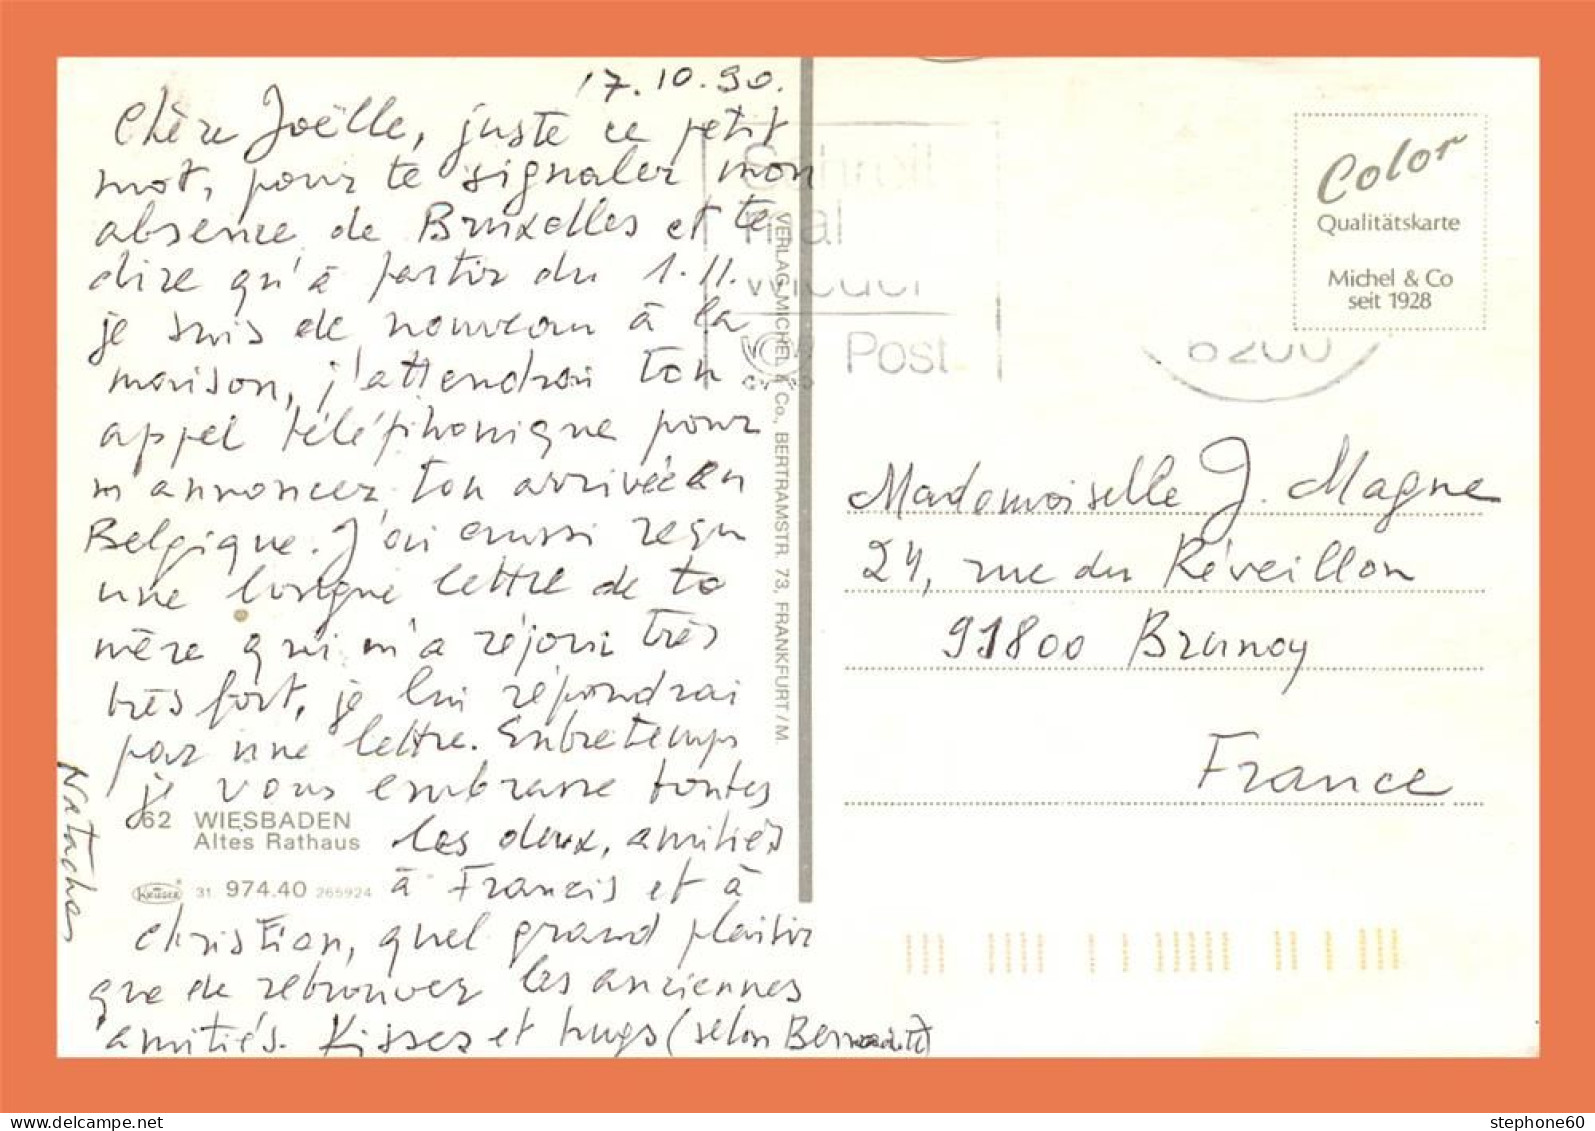 17.10.90.
Chère Joëlle, juste ce petit
mot, pour te signaler mon
absence de Bruxelles et te
dire qu'à partir du 1.11.
je suis de nouveau à la
maison, j'attendrai ton
appel téléphonique pour
m'annoncer ton arrivée en
Belgique. J'ai aussi reçu
une longue lettre de ta
mère qui m'a réjoui très
très fort, je lui répondrai
par une lettre. Entretemps
je vous embrasse toutes
les deux, amitiés
à Francis et à
Christian, quel grand plaisir
que de retrouver les anciennes
amitiés. Kisses et hugs (selon Bernadette)
Natacha
62 WIESBADEN
Altes Rathaus
Krüger 31 974.40 265924
VERLAG MICHEL & Co., BERTRAMSTR. 73, FRANKFURT/M.
Schreib
mal
wieder
Post
6200
Color
Qualitätskarte
Michel & Co
seit 1928
Mademoiselle J. Magne
24, rue du Réveillon
91800 Brunoy
France
stephone60